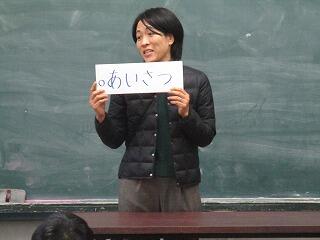 。あいさつ